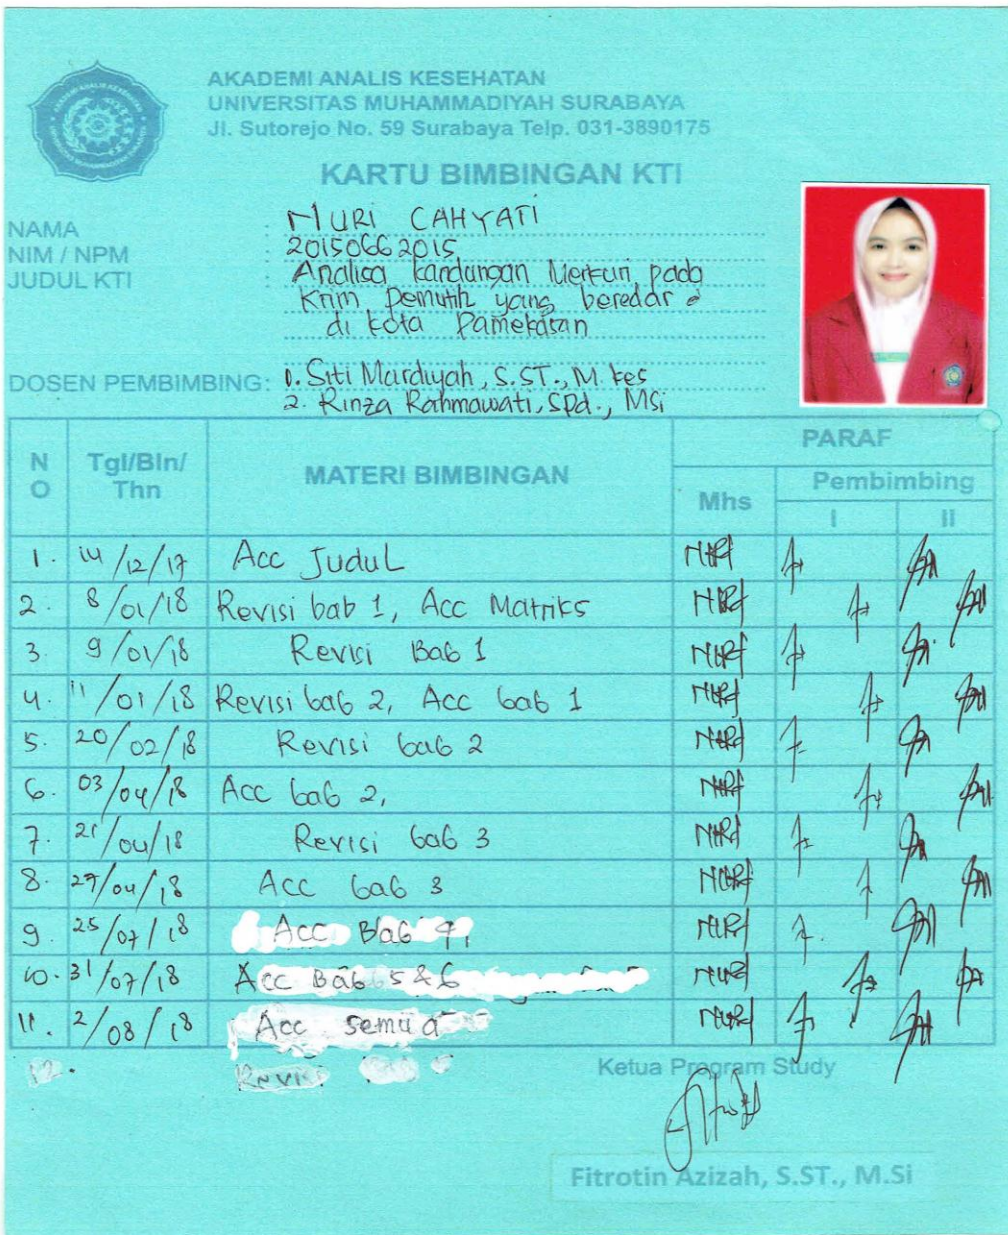 AKADEMI ANALIS KESEHATAN
UNIVERSITAS MUHAMMADIYAH SURABAYA
Jl. Sutorejo No. 59 Surabaya Telp. 031-3890175
KARTU BIMBINGAN KTI
NAMA : NURI CAHYATI
NIM / NPM : 20150662015
JUDUL KTI : Analisa kandungan Merkuri pada
Krim Pemutih yang beredar
di kota Pamekasan
DOSEN PEMBIMBING: 1. Siti Mardiyah, S.ST., M.kes
2. Rinza Rahmawati, Spd., MSi
NO Tgl/Bln/Thn MATERI BIMBINGAN PARAF
Mhs Pembimbing
I II
1. 14/12/17 Acc Judul
2. 8/01/18 Revisi bab 1, Acc Matriks
3. 9/01/18 Revisi Bab 1
4. 11/01/18 Revisi bab 2, Acc bab 1
5. 20/02/18 Revisi bab 2
6. 03/04/18 Acc bab 2,
7. 21/04/18 Revisi bab 3
8. 27/04/18 Acc bab 3
9. 25/07/18 Acc Bab 4,
10. 31/07/18 Acc Bab 5 & 6
11. 2/08/18 Acc semua
12. Revisi
Ketua Program Study
Fitrotin Azizah, S.ST., M.Si